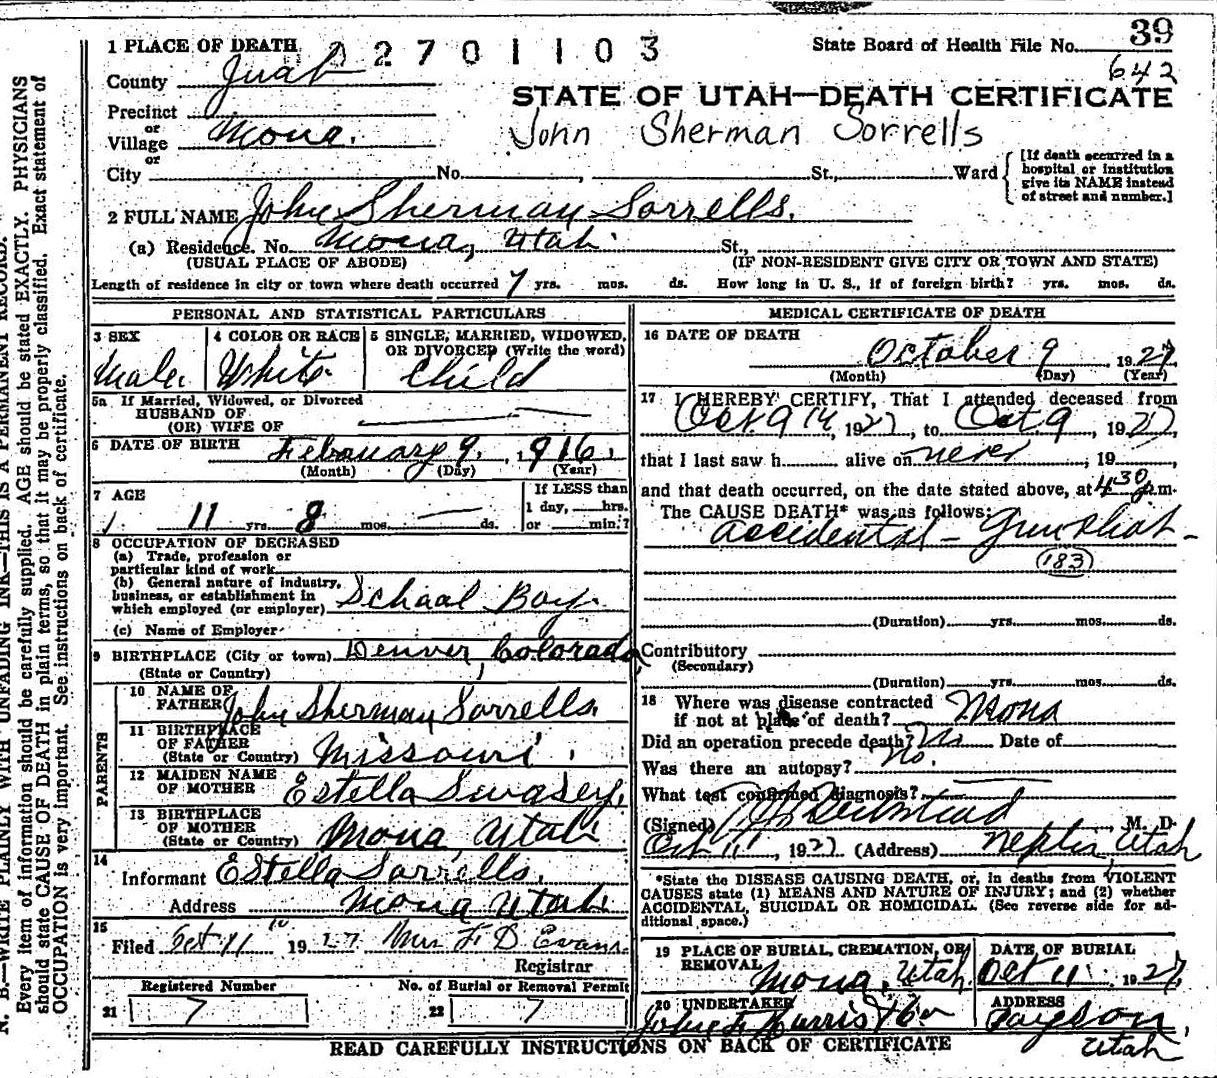 39
1 PLACE OF DEATH 2701103 State Board of Health File No.
642
County Juab
STATE OF UTAH—DEATH CERTIFICATE
Precinct
or
Village Mona.
John Sherman Sorrells
or
City No. , St., Ward
[If death occurred in a
hospital or institution
give its NAME instead
of street and number.]
2 FULL NAME John Sherman Sorrells.
(a) Residence. No. Mona, Utah. St.,
(USUAL PLACE OF ABODE) (IF NON-RESIDENT GIVE CITY OR TOWN AND STATE)
Length of residence in city or town where death occurred 7 yrs. mos. ds. How long in U. S., if of foreign birth? yrs. mos. ds.
PERSONAL AND STATISTICAL PARTICULARS
3 SEX
Male.
4 COLOR OR RACE
White.
5 SINGLE, MARRIED, WIDOWED,
OR DIVORCED (Write the word)
Child
5a If Married, Widowed, or Divorced
HUSBAND OF
(OR) WIFE OF
6 DATE OF BIRTH February 9, 1916.
(Month) (Day) (Year)
7 AGE
11 yrs. 8 mos. ds.
If LESS than
1 day, hrs.
or min.?
8 OCCUPATION OF DECEASED
(a) Trade, profession or
particular kind of work
(b) General nature of industry,
business, or establishment in
which employed (or employer) School Boy.
(c) Name of Employer
9 BIRTHPLACE (City or town) Denver, Colorado
(State or Country)
PARENTS
10 NAME OF
FATHER John Sherman Sorrells.
11 BIRTHPLACE
OF FATHER
(State or Country) Missouri.
12 MAIDEN NAME
OF MOTHER Estella Swasey.
13 BIRTHPLACE
OF MOTHER
(State or Country) Mona Utah
14
Informant Estella Sorrells.
Address Mona Utah
15
Filed Oct 11 1927 Mrs F D Evans.
Registrar
Registered Number
21 7
No. of Burial or Removal Permit
22 7
MEDICAL CERTIFICATE OF DEATH
16 DATE OF DEATH
October 9, 1927
(Month) (Day) (Year)
17 I HEREBY CERTIFY, That I attended deceased from
Oct 9 1927, to Oct 9, 1927,
that I last saw h alive on never, 19
and that death occurred, on the date stated above, at 4 30 p.m.
The CAUSE DEATH* was as follows:
accidental - Gun shot -
(183)
(Duration) yrs. mos. ds.
Contributory
(Secondary)
(Duration) yrs. mos. ds.
18 Where was disease contracted
if not at place of death? Mona
Did an operation precede death? No Date of
Was there an autopsy? No.
What test confirmed diagnosis?
(Signed) , M. D.
Oct 11, 1927 (Address) Nephi, Utah
*State the DISEASE CAUSING DEATH, or, in deaths from VIOLENT
CAUSES state (1) MEANS AND NATURE OF INJURY; and (2) whether
ACCIDENTAL, SUICIDAL OR HOMICIDAL. (See reverse side for ad-
ditional space.)
19 PLACE OF BURIAL, CREMATION, OR
REMOVAL Mona, Utah.
DATE OF BURIAL
Oct 11. 1927
20 UNDERTAKER
John F Harris & Co
ADDRESS
Payson,
Utah
READ CAREFULLY INSTRUCTIONS ON BACK OF CERTIFICATE
N. B.—WRITE PLAINLY WITH UNFADING INK—THIS IS A PERMANENT RECORD.
Every item of information should be carefully supplied. AGE should be stated EXACTLY. PHYSICIANS
should state CAUSE OF DEATH in plain terms, so that it may be properly classified. Exact statement of
OCCUPATION is very important. See instructions on back of certificate.